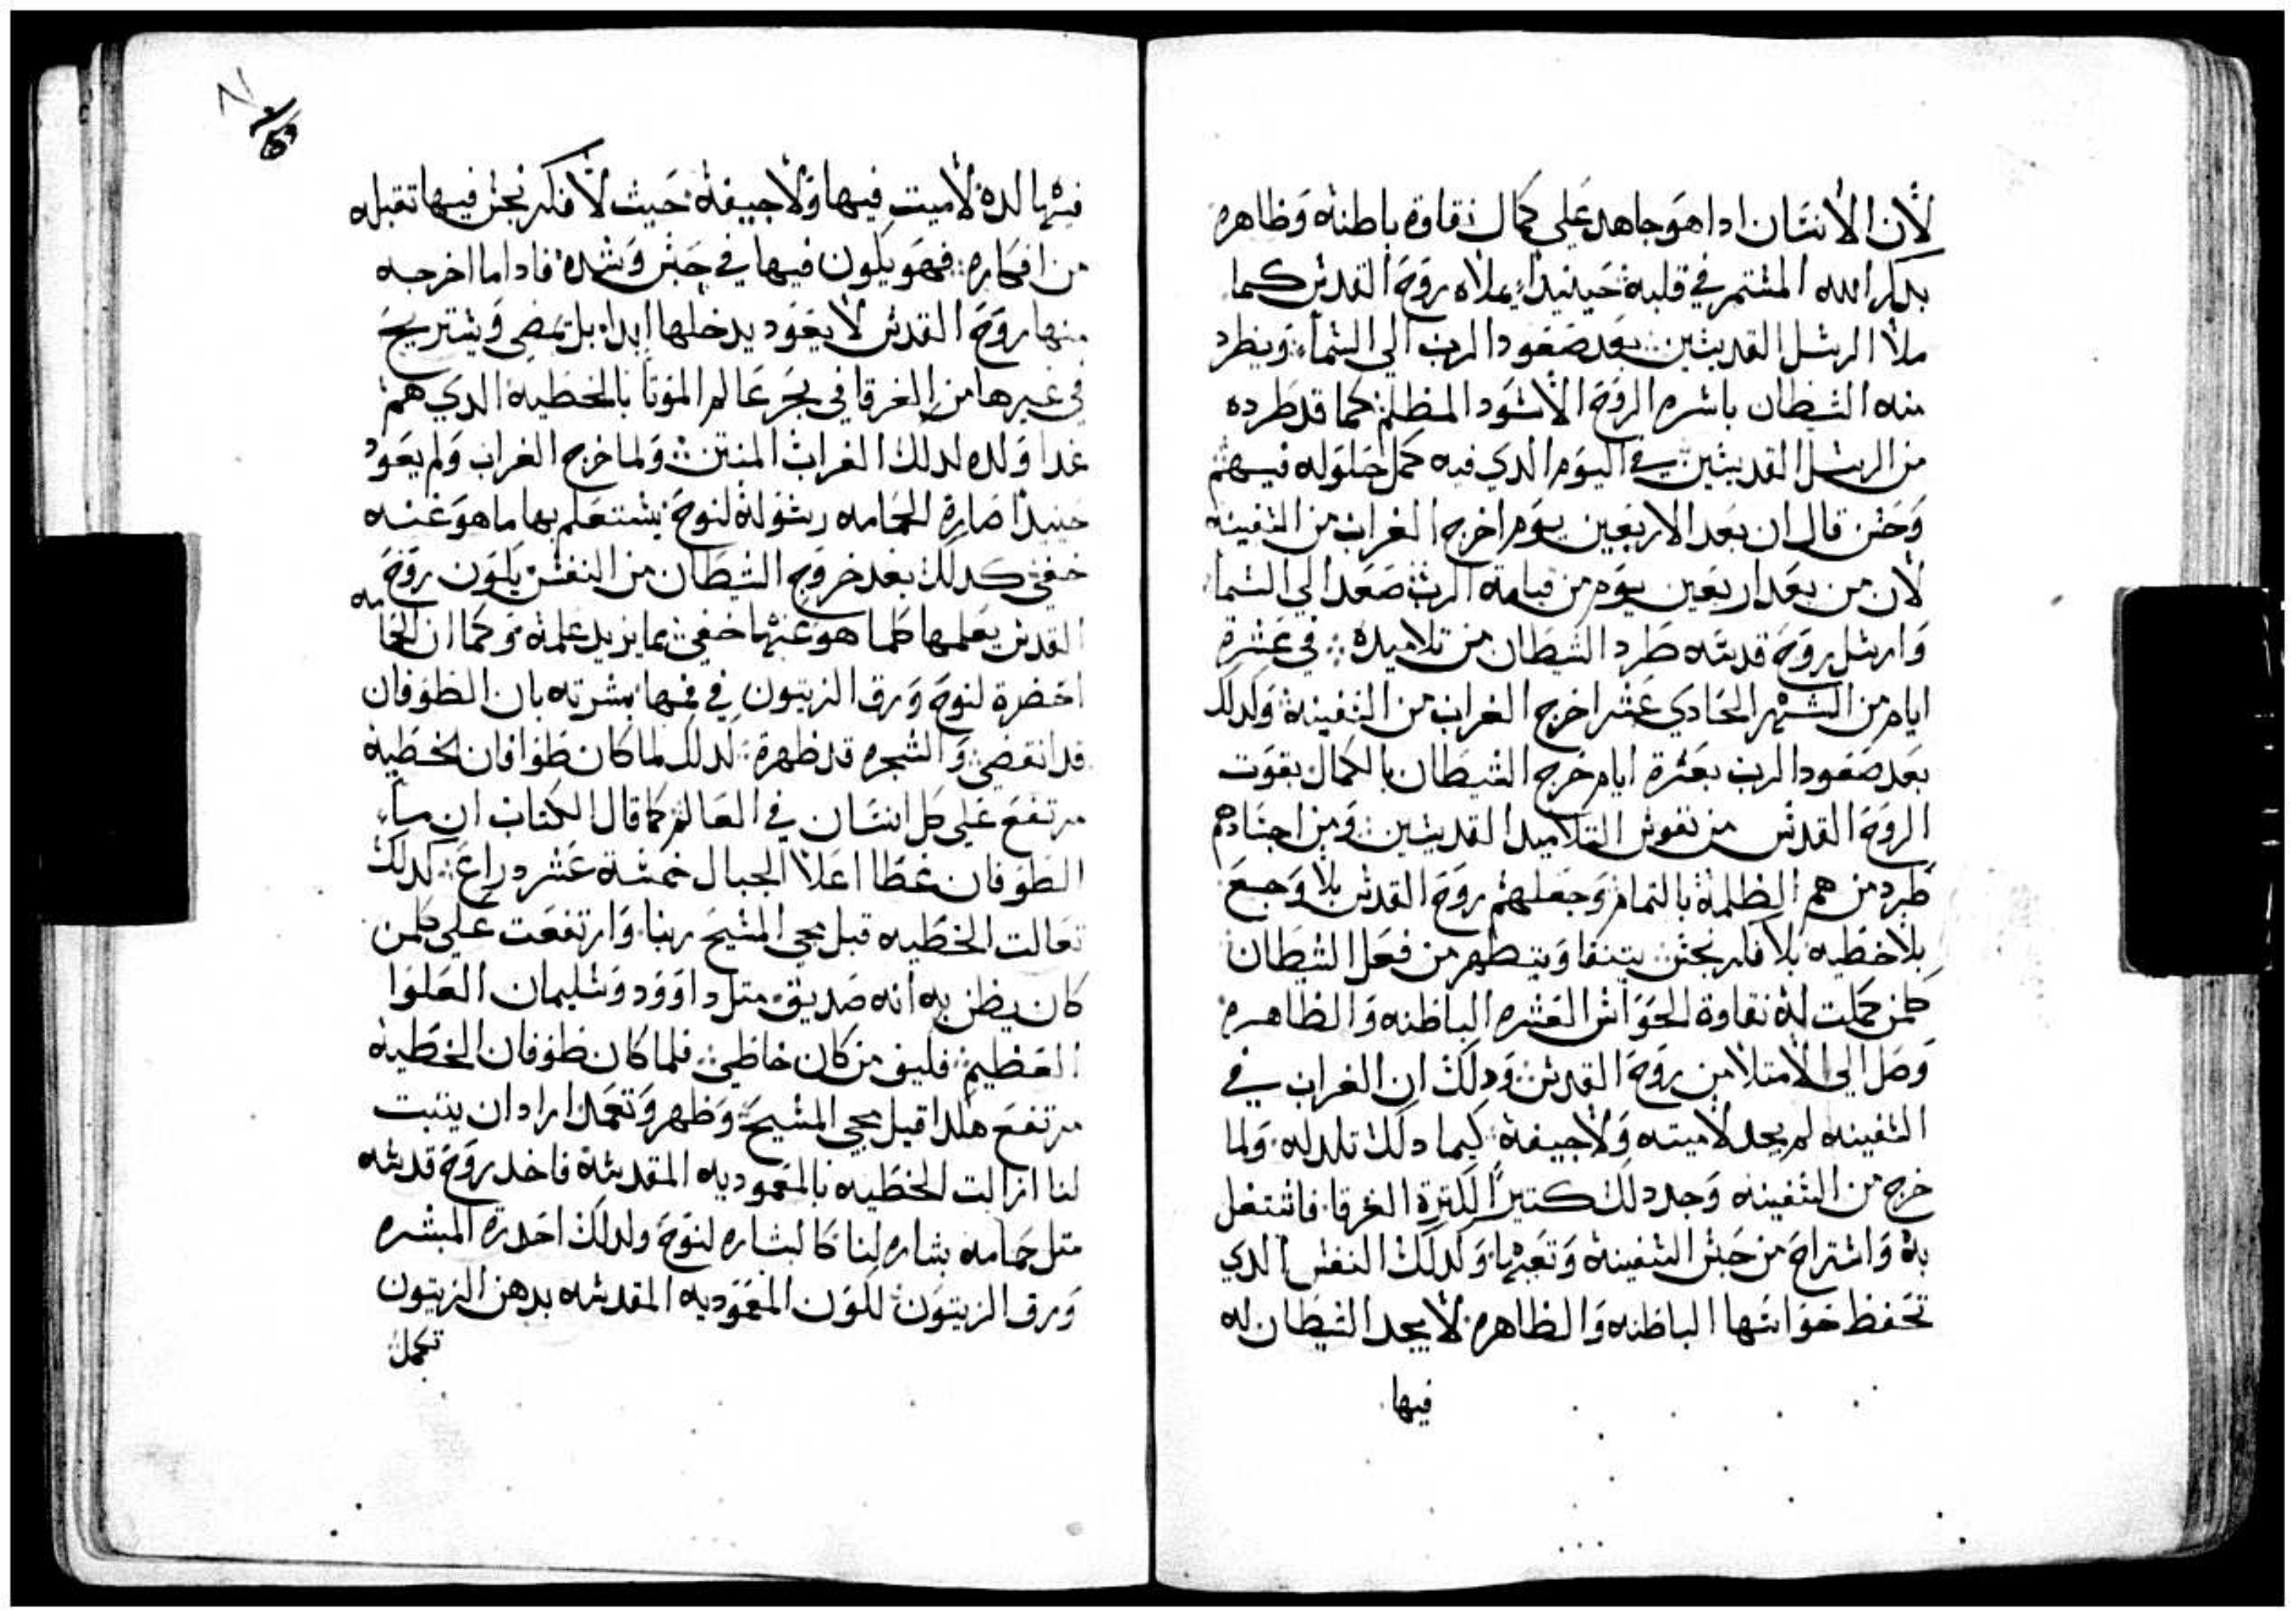 لأن الأنسان ادا هو جاهد علي كمال نقاوة باطنه وظاهره
بدكر الله المستمر في قلبه حينيدا يملاه روح القدس كما
ملا الرسل القديسين بعد صعود الرب الي السماء ويطرد
منه الشيطان باسره الروح الأسود المظلم كما قد طرده
من الرسل القديسين في اليوم الدي فيه كمل حلوله فيهم
وحسن قال ان بعد الاربعين يوم اخرج الغراب من السفينه
لان من بعد اربعين يوم من قيامة الرب صعد الي السما
وارسل روح قدسه طرد الشيطان من تلاميده في عشرة
ايام من الشهر الحادي عشر اخرج الغراب من السفينة وكدلك
بعد صعود الرب بعشرة ايام خرج الشيطان بالكمال بقوت
الروح القدس من نفوس التلاميد القديسين ومن اجسادهم
طرد من هم الظلمة بالتمام وجعلهم روح القدس بلا وجع
بلا خطيه بلا فكر نجس يتنقا ويتطهر من فعل الشيطان
كلمن كملت له نقاوة الحواس العشره الباطنه والظاهره
وصل الي الامتلا من روح القدس ودلك ان الغراب في
السفينه لم يجد لاميته ولا جيفة كيما دلك تلد له ولما
خرج من السفينه وجد دلك كتيرا لكترة الغرقا فاشتغل
به واستراح من حبس السفينة وتعبها وكدلك النفس الدي
تحفظ حواسها الباطنه والظاهره لا يجد الشيطان له
فيها
فيها لده لاميت فيها ولا جيفة حيث لا فكر نجس فيها تقبله
من افكاره فهو يكون فيها في حبس وشده فادا ما اخرجه
منها روح القدس لا يعود يدخلها ابدا بل يمضي ويستريح
في غيرها من الغرقا في بحر عالم الموتا بالخطية الدي هم
غدا ولده لدلك الغراب المنتن ولما خرج الغراب ولم يعود
حنيدا صارة الحمامه رسولة لنوح يستعلم بها ما هو عنه
خفي كدلك بعد خروج الشيطان من النفس يكون روح
القدس يعلمها كلما هو عنها خفي بما يزيد علمة وكما ان الحمامه
احضرة لنوح ورق الزيتون في فمها بشرته بان الطوفان
قد انقضي والشجره قد ظهرة كدلك لما كان طوافان الخطيه
مرتفع علي كل انسان في العالم كما قال الكتاب ان ماء
الطوفان غطا اعلا الجبال خمسة عشر دراع كدلك
تعالت الخطيه قبل مجي المسيح ربنا وارتفعت علي كلمن
كان يظن به انه صديق متل داوود وسليمان العلوا
العظيم فكيف من كان خاطي فلما كان طوفان الخطية
مرتفع هكدا قبل مجي المسيح وظهر وتعمد اراد ان يتبت
لنا ازالت الخطيه بالمعموديه المقدسة فاخد روح قدسه
متل حمامه بشاره لنا كالبشاره لنوح ولدلك احدرة المبشره
ورق الزيتون لكون المعموديه المقدسه بدهن الزيتون
تكمل